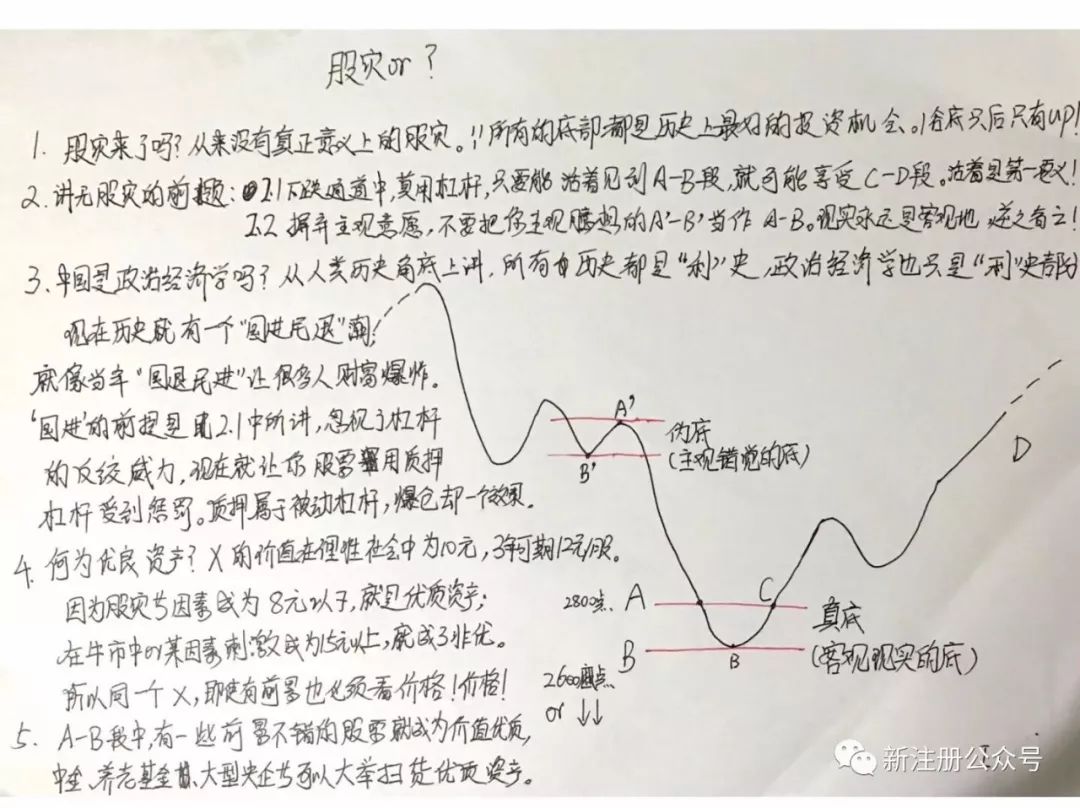 股灾or？
1. 股灾来了吗？从来没有真正意义上的股灾。!!所有的底部都是历史上最好的投资机会。谷底只后只有up!
2. 讲无股灾的前提：2.1下跌通道中，莫用杠杆，只要能活着见到A-B段，就可能享受C-D段。活着是第一要义！
2.2 摒弃主观意愿，不要把你主观臆想的A'-B'当作A-B。现实永远是客观地，逆之者亡！
3. 中国是政治经济学吗？从人类历史角底上讲，所有的历史都是“利”史，政治经济学也只是“利”史部分
现在历史就有一个“国进民退”潮！
就像当年“国退民进”让很多人财富爆炸。
‘国进’的前提是2.1中所讲，忽视了杠杆
的反绞威力，现在就让你股票用质押
杠杆受到惩罚。质押属于被动杠杆，爆仓却一个效果。
4. 何为优良资产？X的价值在理性社会中为10元，3年可期12元/股。
因为股灾与因素成为8元以下，就是优质资产；
在牛市中以某因素刺激成为15元以上，就成了非优。
所以同一个X，即使有前景也必须看价格！价格！
5. A-B段中，有一些前景不错的股票就成为价值优质，
中金、养老基金、大型央企与可以大举扫货优质资产。
A'
B'
伪底
（主观错觉的底）
D
2800点
A
C
真底
B
B
（客观现实的底）
2600点
or ↓↓
新注册公众号